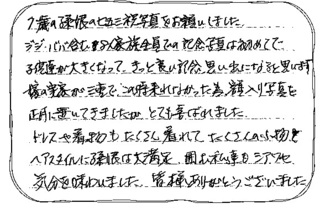 7歳の孫娘のとき三世写真をお願いしました
ジジ・ババ含む家族全員での記念写真は初めてで
子供達が大きくなって、きっと良い記念、思い出になると思います
嫁の実家が三重で、この時来れなかった為、額入り写真を
正月に置いてきましたが とても喜ばれました
ドレスや着物もたくさん着れて たくさんの小物と
ヘアスタイルに孫娘は大満足
気分を味わいました 皆様ありがとうございました